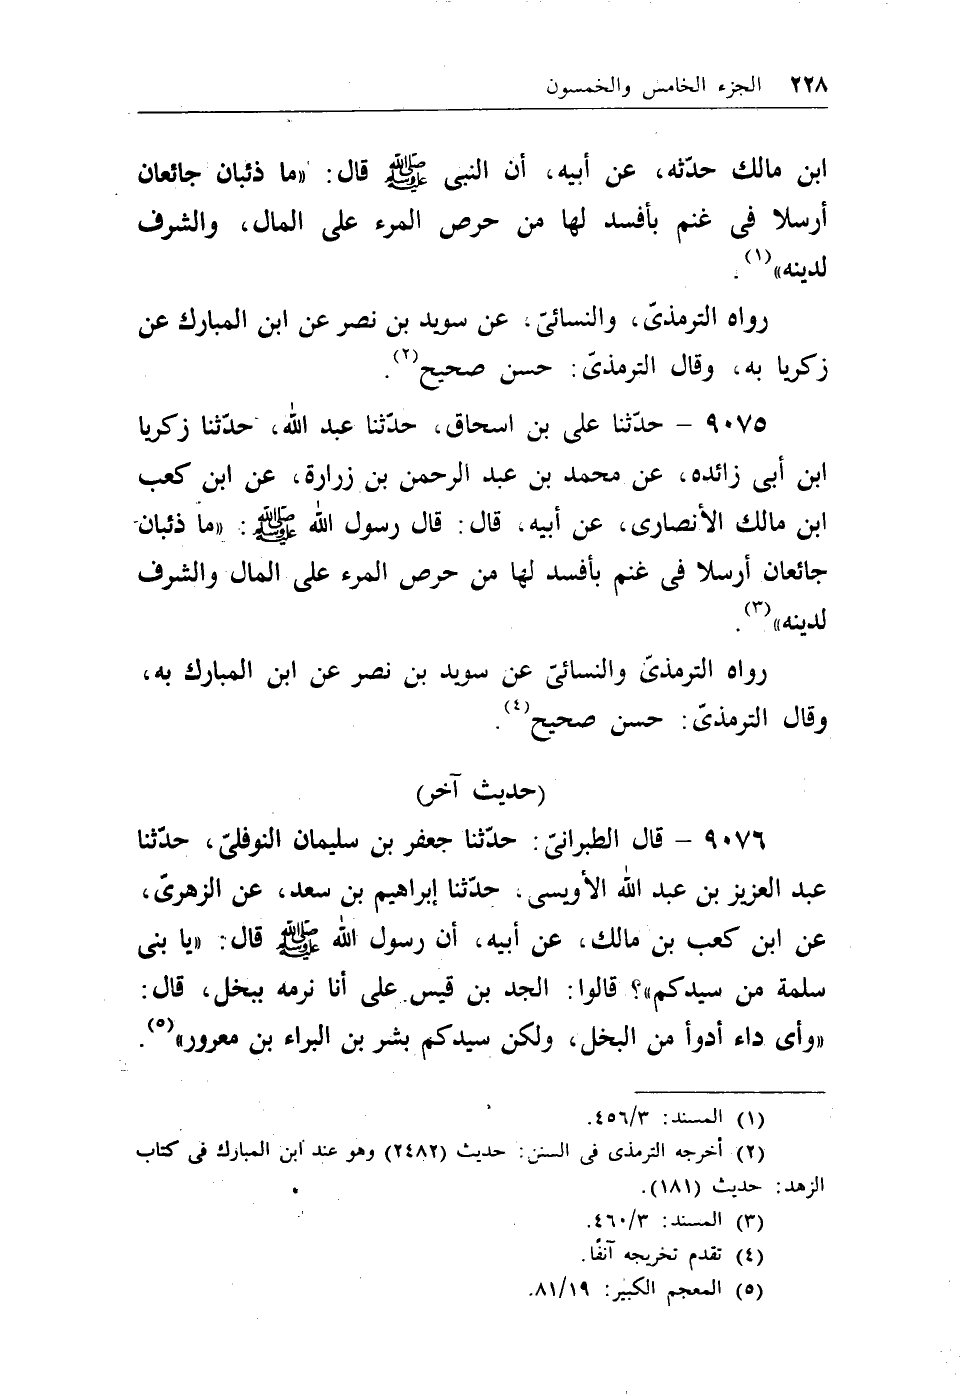 ٢٢٨ الجزء الخامس والخمسون
ابن مالك حدّثه، عن أبيه، أن النبى ﷺ قال: «ما ذئبان جائعان
أرسلا فى غنم بأفسد لها من حرص المرء على المال، والشرف
لدينه»(١).
رواه الترمذىّ، والنسائىّ، عن سويد بن نصر عن ابن المبارك عن
زكريا به، وقال الترمذىّ: حسن صحيح(٢).
٩٠٧٥ – حدّثنا على بن اسحاق، حدّثنا عبد الله، حدّثنا زكريا
ابن أبى زائده، عن محمد بن عبد الرحمن بن زرارة، عن ابن كعب
ابن مالك الأنصارى، عن أبيه، قال: قال رسول الله ﷺ: «ما ذئبان
جائعان أرسلا فى غنم بأفسد لها من حرص المرء على المال والشرف
لدينه»(٣).
رواه الترمذىّ والنسائىّ عن سويد بن نصر عن ابن المبارك به،
وقال الترمذىّ: حسن صحيح(٤).
(حديث آخر)
٩٠٧٦ – قال الطبرانىّ: حدّثنا جعفر بن سليمان النوفلىّ، حدّثنا
عبد العزيز بن عبد الله الأويسى، حدّثنا إبراهيم بن سعد، عن الزهرىّ،
عن ابن كعب بن مالك، عن أبيه، أن رسول الله ﷺ قال: «يا بنى
سلمة من سيدكم»؟ قالوا: الجد بن قيس على أنا نرمه ببخل، قال:
«وأى داء أدوأ من البخل، ولكن سيدكم بشر بن البراء بن معرور»(٥).
(١) المسند: ٤٥٦/٣.
(٢) أخرجه الترمذى فى السنن: حديث (٢٤٨٢) وهو عند ابن المبارك فى كتاب
الزهد: حديث (١٨١).
(٣) المسند: ٤٦٠/٣.
(٤) تقدم تخريجه آنفًا.
(٥) المعجم الكبير: ٨١/١٩.